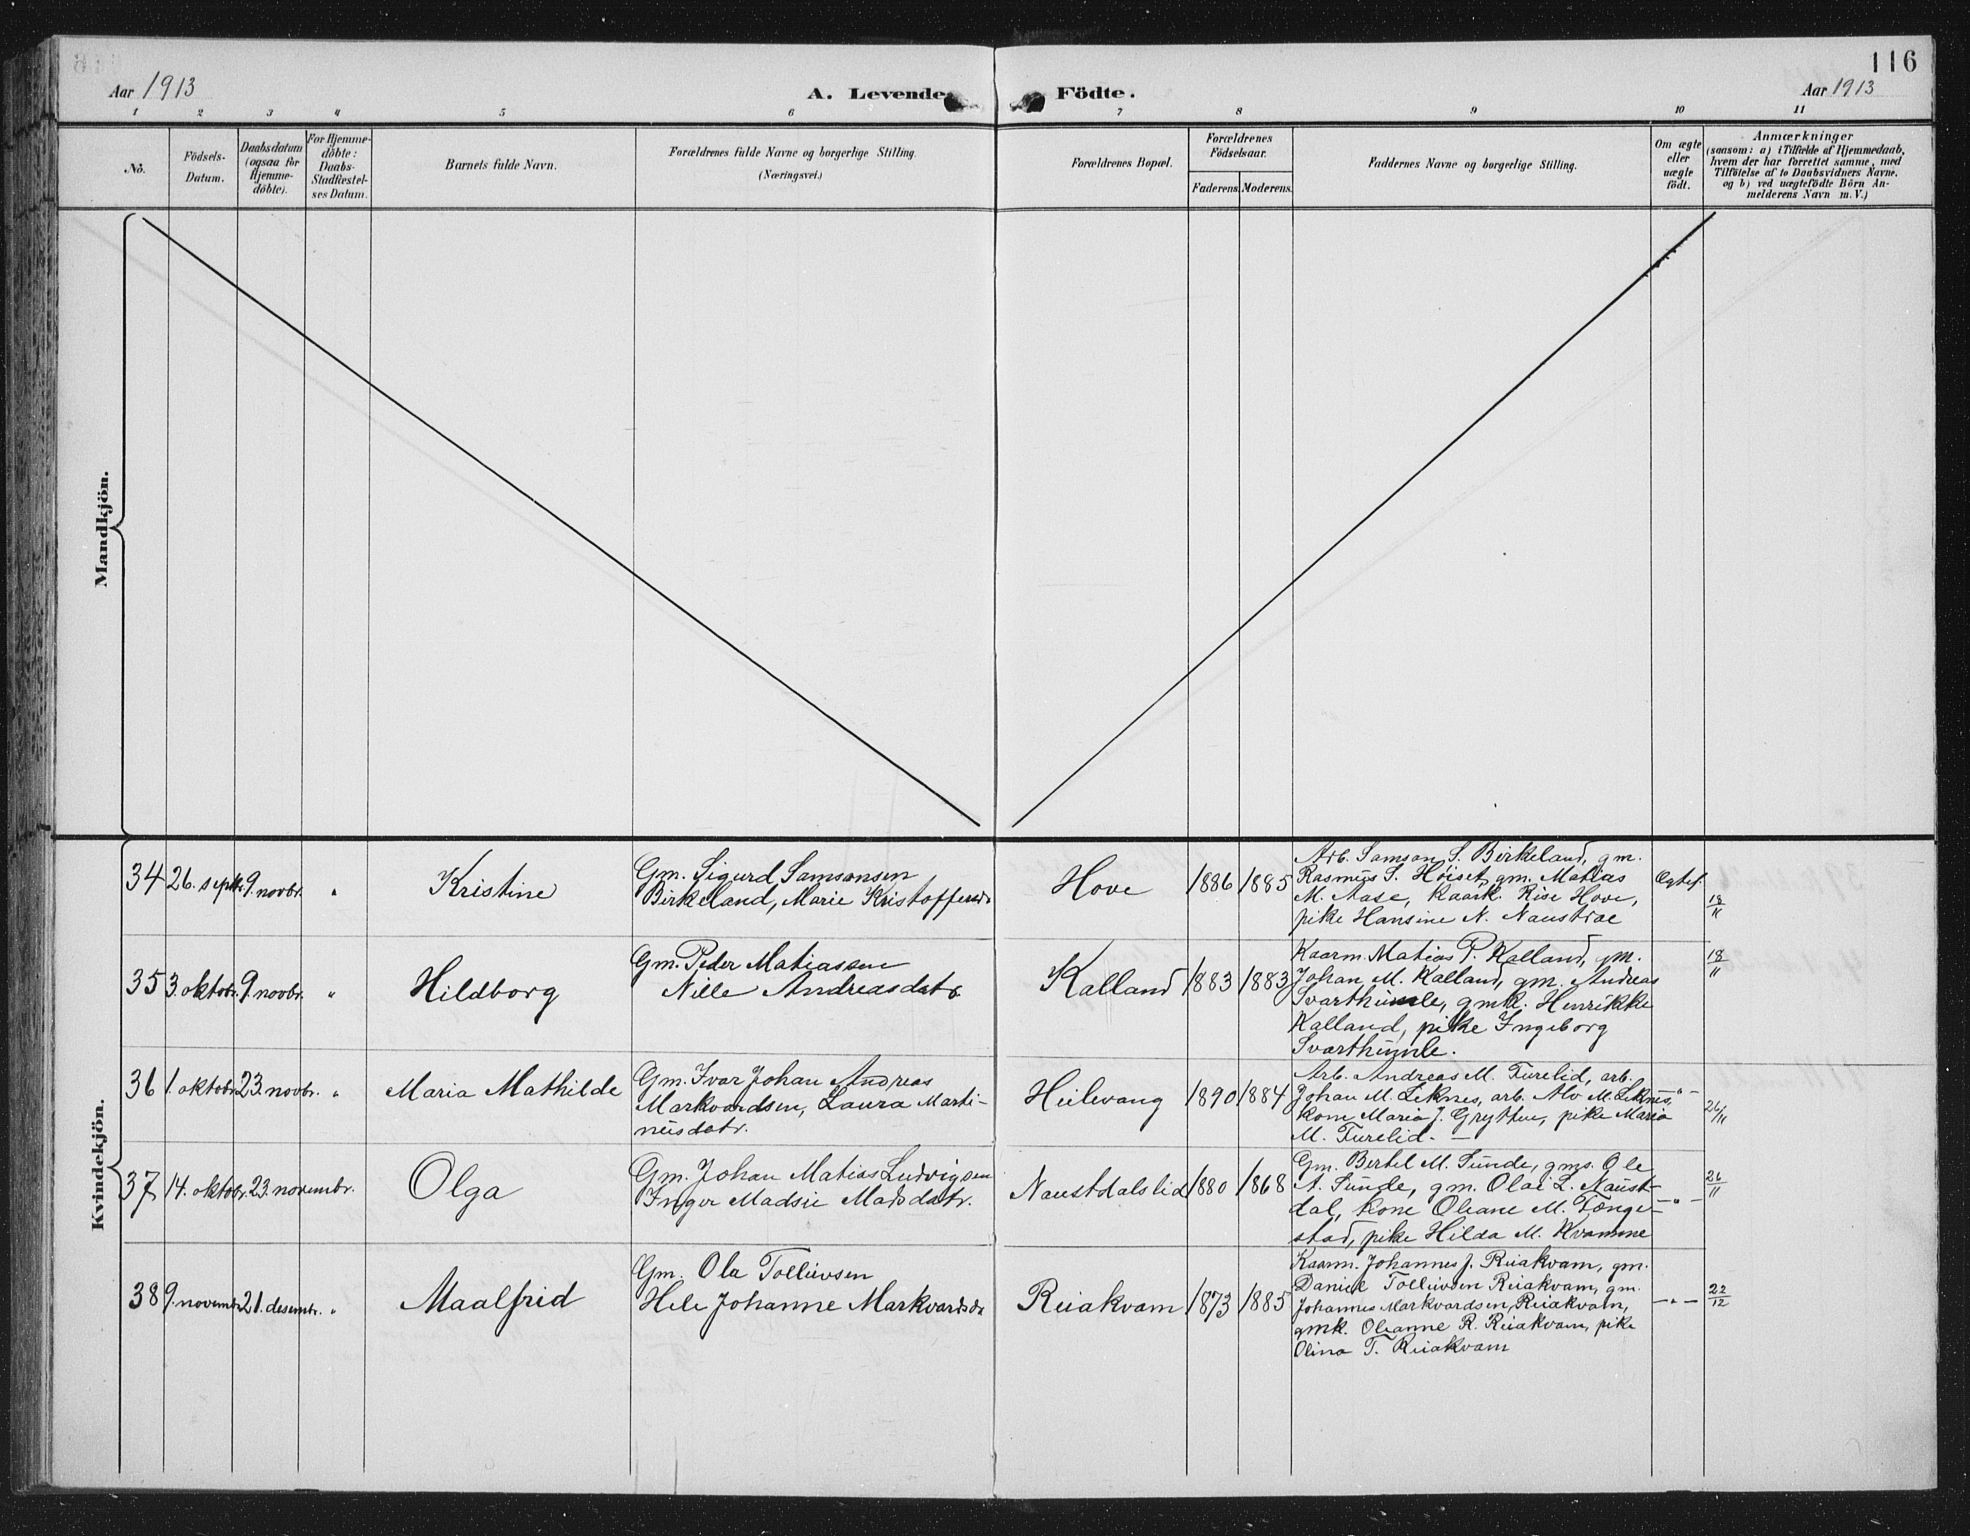 116
Aar 1913
A. Levende Födte.
Aar 1913
1 2 3 4 5 6 7 8 9 10 11
No.
Födsels-
Datum.
Daabsdatum
(ogsaa for
Hjemme-
döbte).
For Hjemme-
döbte:
Daabs-
Stadfæstel-
ses Datum.
Barnets fulde Navn.
Forældrenes fulde Navne og borgerlige Stilling.
(Næringsvei.)
Forældrenes Bopæl.
Forældrenes
Födselsaar.
Faderens. Moderens.
Faddernes Navne og borgerlige Stilling.
Om ægte
eller
uægte
födt.
Anmærkninger
(saasom: a) i Tilfælde af Hjemmedaab,
hvem der har forrettet samme, med
Tilföielse af to Daabsvidners Navne,
og b) ved uægtefödte Börn An-
melderens Navn m. V.)
Mandkjön.
Kvindekjön.
34 26. septbr. 9. novbr. "
Kristine
Gm. Sigurd Samsonsen
Birkeland, Marie Kristoffersdr
Hove
1886 1885
Arb. Samson S. Birkeland, gm.
Rasmus S. Höiset, gm. Matias
M. Aase, kaark. Rise Hove,
pike Hansine N. Naustdal
Ægtef.
18/11
35 3. oktobr. 9. novbr. "
Hildborg
Gm. Peder Matiassen
Nille Andreasdatr.
Kalland
1883 1883
Kaarm. Matias P. Kalland, gm.
Johan M. Kalland, gm. Andreas
Svarthumle, gmk. Henrikke
Kalland, pike Ingeborg
Svarthumle.
18/11
36 1. oktobr. 23. novbr. "
Maria Mathilde
Gm. Ivar Johan Andreas
Markvardsen, Laura Marti-
nusdatr.
Heilevang
1890 1884
Arb. Andreas M. Furelid, arb.
Johan M. Leknes, arb. Alv M. Leknes,
kone Maria J. Grytten, pike Maria
M. Furelid. —
— " —
26/11
37 14. oktobr. 23. novembr.
Olga
Gm. Johan Matias Ludvigsen
Inger Madsie Madsdatr.
Naustdalslid
1880 1868
Gm. Bertel M. Sunde, gms. Ole
A. Sunde, gm. Olai L. Naust-
dal, kone Oleane M. Fænge-
stad, pike Hilda M. Kvamme
— " —
26/11
38 9. novembr. 21. desembr. "
Maalfrid
Gm. Ola Tolleivsen
Hele Johanne Markvardsdr
Reiakvam
1873 1885
Kaarm. Johannes J. Reiakvam, gm.
Daniel Tolleivsen Reiakvam, gm.
Johannes Markvardsen Reiakvam,
gmk. Oleanne R. Reiakvam, pike
Olina T. Reiakvam
— " —
22/12